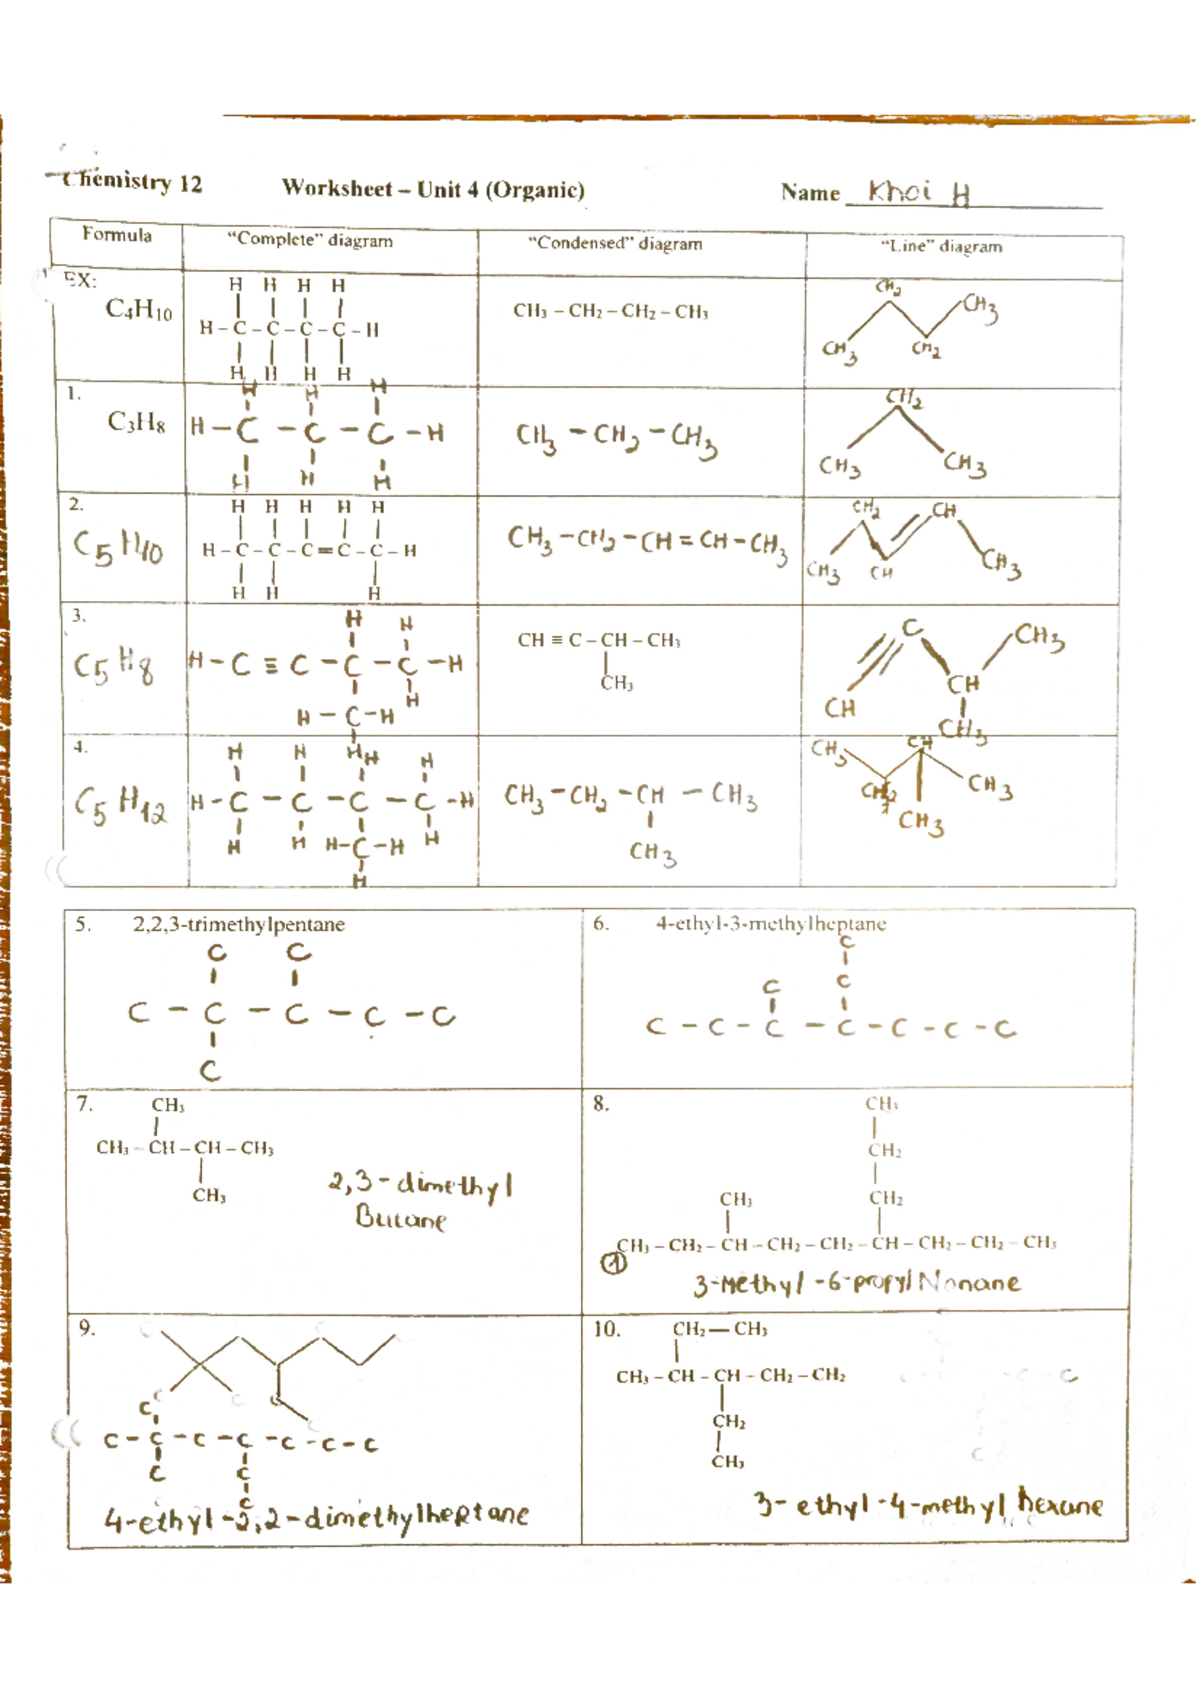 Chemistry 12 Worksheet – Unit 4 (Organic) Name Khoi H
Formula "Complete" diagram "Condensed" diagram "Line" diagram
EX:
C4H10
H H H H
H – C – C – C – C – H
H H H H
CH3 – CH2 – CH2 – CH3
CH2 CH3
CH3 CH2
1.
C3H8
H H H
H – C – C – C – H
H H H
CH3 – CH2 – CH3
CH2
CH3 CH3
2.
C5H10
H H H H H
H – C – C – C = C – C – H
H H H
CH3 – CH2 – CH = CH – CH3
CH2 CH
CH3 CH CH3
3.
C5H8
H H
H – C ≡ C – C – C – H
H
H – C – H
H
CH ≡ C – CH – CH3
CH3
C CH3
CH CH
CH3
4.
C5H12
H H H H
H – C – C – C – C – H
H H H – C – H H
H
CH3 – CH2 – CH – CH3
CH3
CH3 CH
CH2 CH3
CH3
5. 2,2,3-trimethylpentane
C C
C – C – C – C – C
C
6. 4-ethyl-3-methylheptane
C
C C
C – C – C – C – C – C – C
7. CH3
CH3 – CH – CH – CH3
CH3
2,3-dimethyl
Butane
8. CH3
CH2
CH3 CH2
CH3 – CH2 – CH – CH2 – CH2 – CH – CH2 – CH2 – CH3
1
3-Methyl-6-propyl Nonane
9.
C
C – C – C – C – C – C – C
C C
C
4-ethyl-2,2-dimethylheptane
10. CH2 — CH3
CH3 – CH – CH – CH2 – CH2
CH2
CH3
3-ethyl-4-methyl hexane